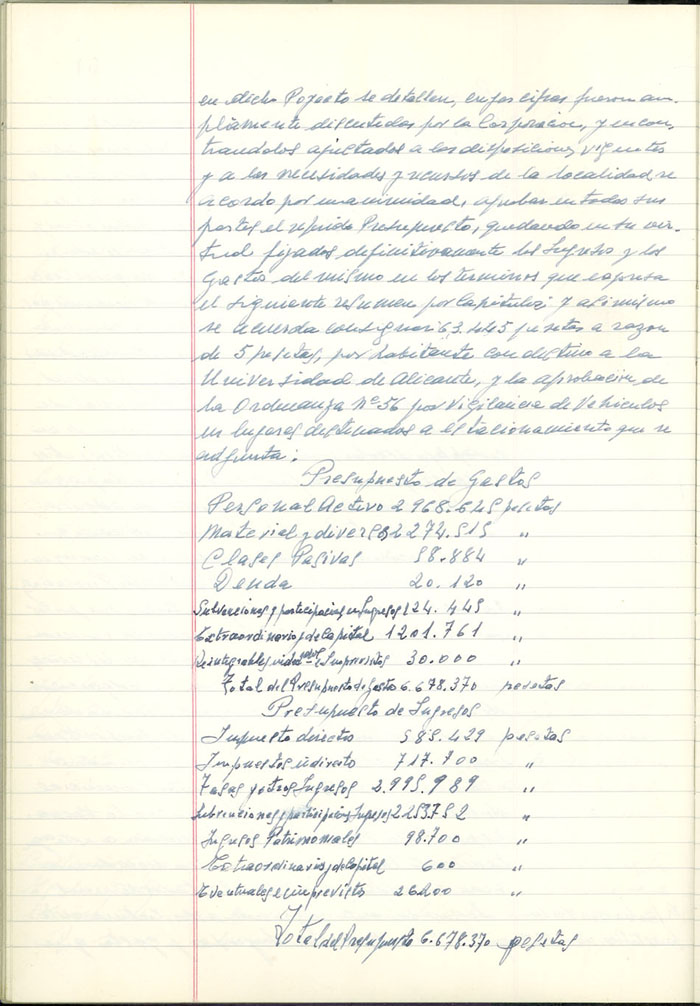 en dicho Poyecto se detallan, cuyas cifras fueron am-
pliamente discutidas por la Corporacion, y encon-
trandolos ajustados a las disposiciones vigentes
y a las necesidades y recursos de la localidad se
acordo por unanimidad, aprobar en todas sus
partes el referido Presupuesto, quedando en su vir-
tud fijados definitivamente los Ingresos y los
Gastos del mismo en los terminos que expresa
el siguiente resumen por Capitulos; y asi mismo
se acuerda consignar 63.445 pesetas a razon
de 5 pesetas, por habitante con destino a la
Universidad de Alicante, y la aprobacion de
la Ordenanza Nº 56 por Vigilancia de Vehiculos
en lugares destinados a estacionamiento que se
adjunta:
Presupuesto de Gastos
Personal Activo 2968.645 pesetas
Material y diversos 2274.515 "
Clases Pasivas 58.884 "
Deuda 20.120 "
Subvenciones y participacion en Ingresos 124.445 "
Extraordinario y de Capital 1201.761 "
Reintegrables indeterminados e Imprevistos 30.000 "
Total del Presupuesto de Gasto 6.678.370 pesetas
Presupuesto de Ingresos
Impuesto directo 585.429 pesetas
Impuestos indirecto 717.700 "
Tasas y otros Ingresos 2.995.989 "
Subvenciones y participacion Ingresos 2253752 "
Ingresos Patrimoniales 98.700 "
Extraordinarios y de Capital 600 "
Eventuales e imprevisto 26200 "
Total del Presupuesto 6.678.370 pesetas